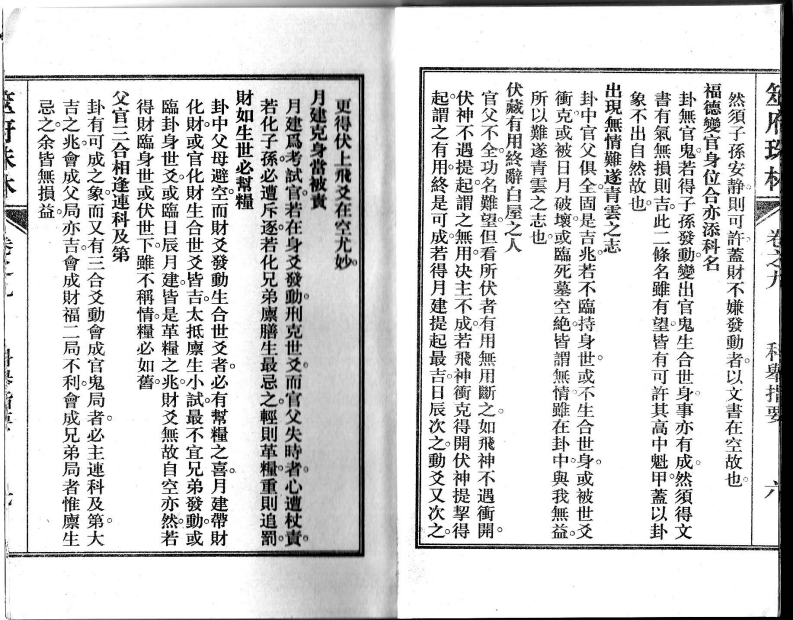 筮府珠林
卷之九
科舉指要
六
然須子孫安靜則可許蓋財不嫌發動者以文書在空故也。
福德變官身位合亦添科名
卦無官鬼若得子孫發動變出官鬼生合世身事亦有成然須得文
書有氣無損則吉此二條名雖有望皆有可許其高中魁甲蓋以卦
象不出自然故也。
出現無情難遂青雲之志
卦中官父俱全固是吉兆若不臨持身世或不生合世身或被世爻
衝克或被日月破壞或臨死墓空絶皆謂無情雖在卦中與我無益。
所以難遂青雲之志也
伏藏有用終辭白屋之人
官父不全功名難望但看所伏者有用無用斷之如飛神不遇衝開
伏神不遇提起謂之無用决主不成若飛神衝克得開伏神提挈得
起謂之有用終是可成若得月建提起最吉日辰次之動爻又次之。
更得伏上飛爻在空尤妙。
月建克身當被責
月建爲考試官若在身爻發動刑克世爻而官父失時者心遭杖責。
若化子孫必遭斥逐若化兄弟廪膳生最忌之輕則革糧重則追罰。
財如生世必幫糧
卦中父母避空而財爻發動生合世爻者必有幫糧之喜月建帶財
化財或官化財生合世爻皆吉太抵廪生小試最不宜兄弟發動或
臨卦身世爻或臨日辰月建皆是革糧之兆財爻無故自空亦然若
得財臨身世或伏世下雖不稱情糧必如舊。
父官三合相逢連科及第
卦有可成之象而又有三合爻動會成官鬼局者必主連科及第大
吉之兆會成父局亦吉會成財福二局不利會成兄弟局者惟廪生
忌之余皆無損益
筮府珠林
卷之九
科舉指要
七